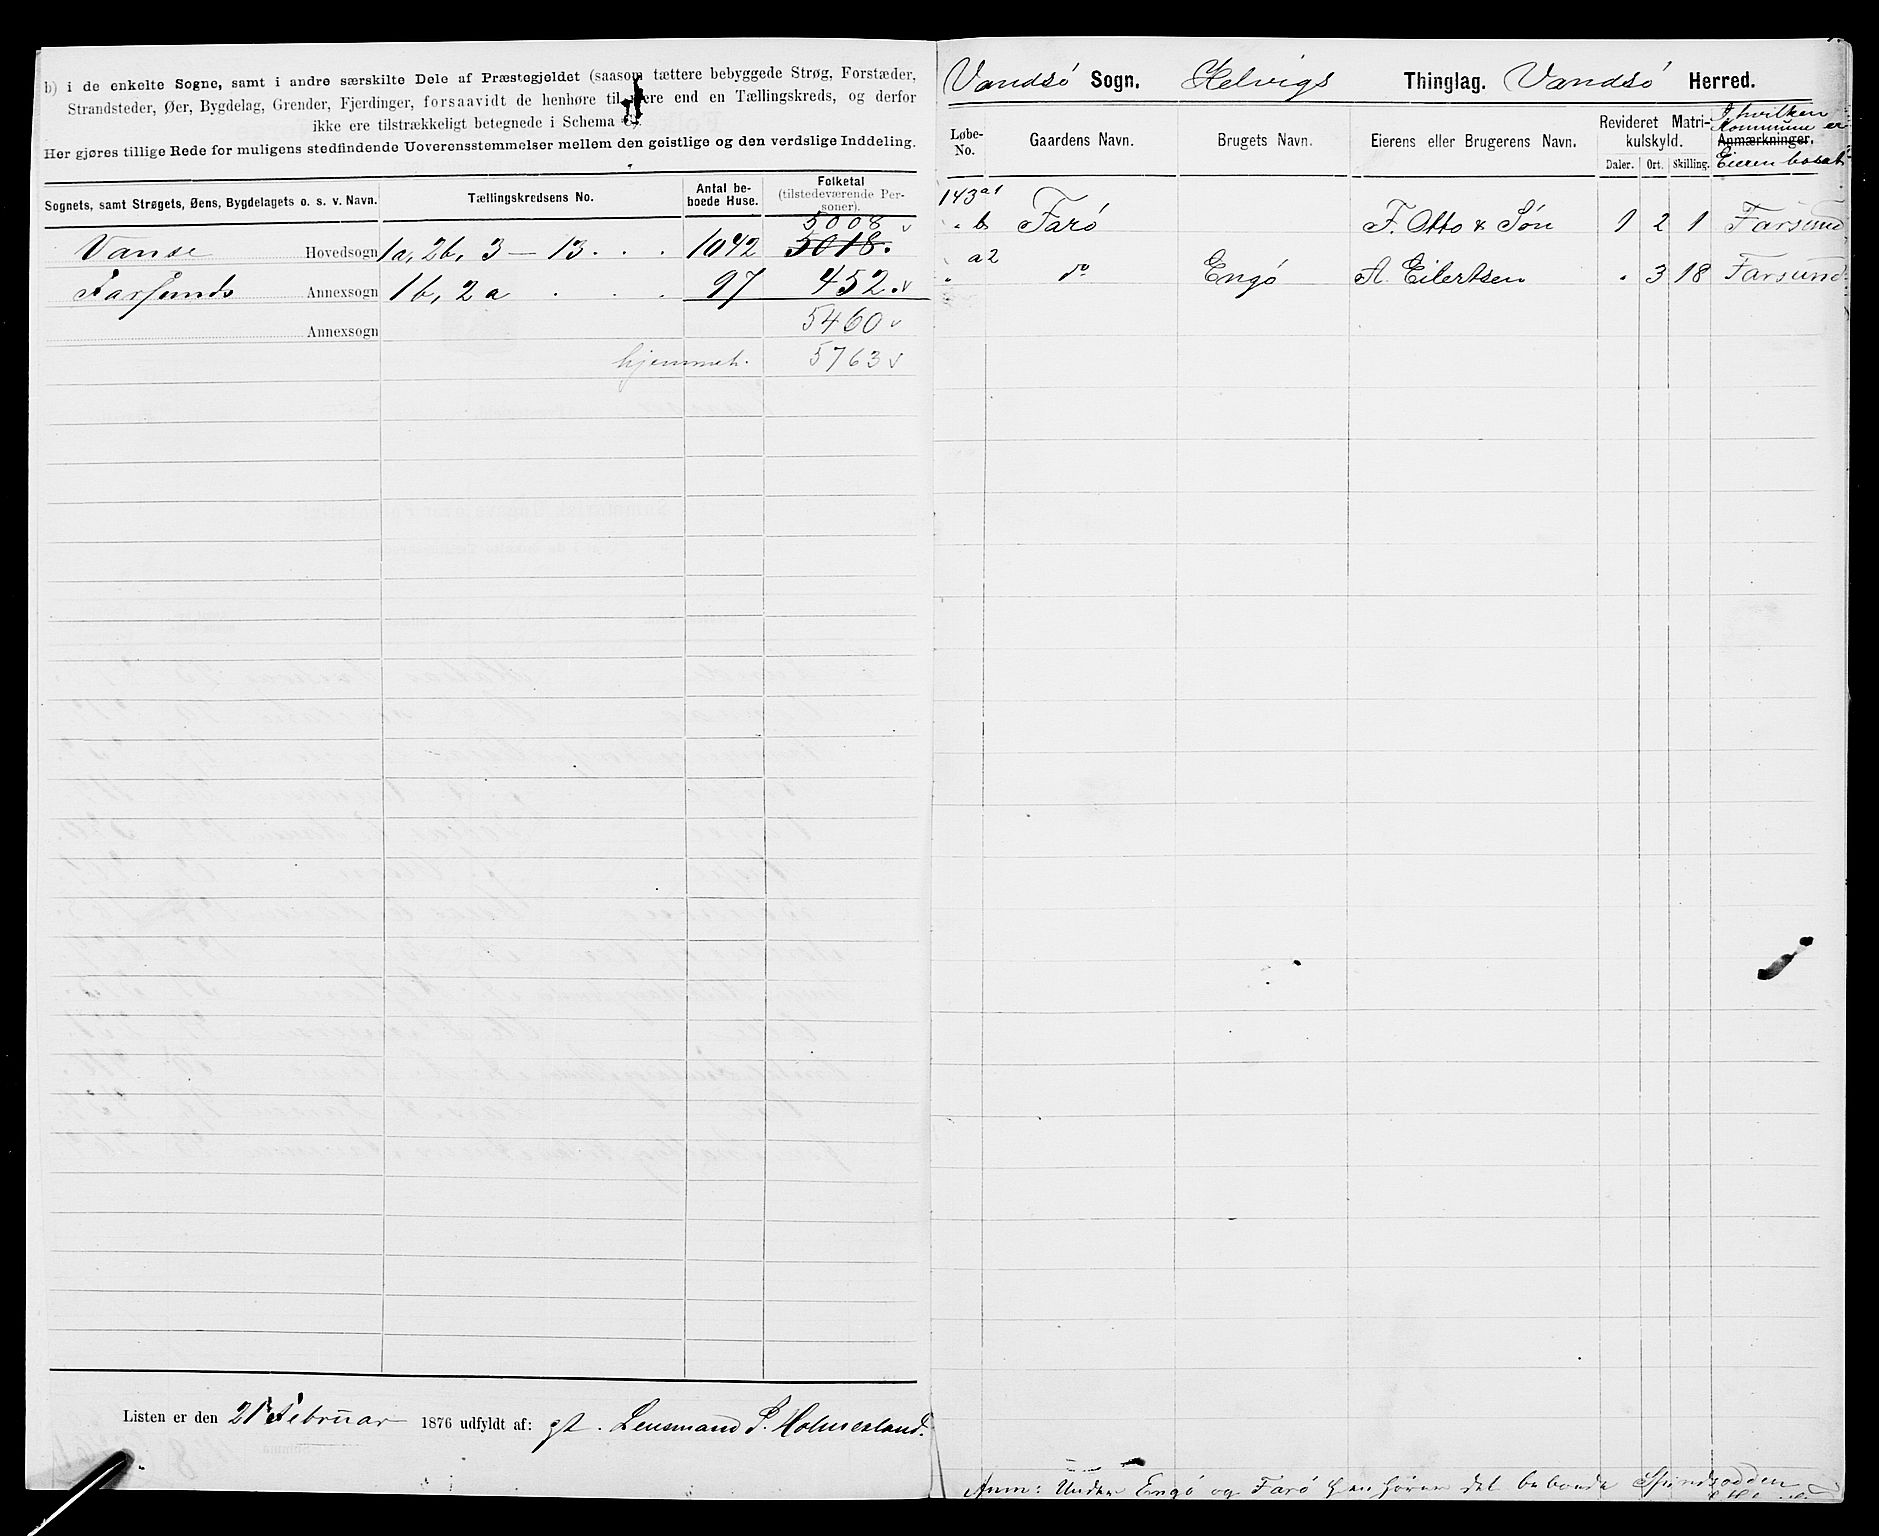 b) i de enkelte Sogne, samt i andre særskilte Dele af Præstegjeldet (saasom tættere bebyggede Strøg, Forstæder,
Strandsteder, Øer, Bygdelag, Grender, Fjerdinger, forsaavidt de henhøre til mere end en Tællingskreds, og derfor
ikke ere tilstrækkeligt betegnede i Schema C).
Her gjøres tillige Rede for muligens stedfindende Uoverensstemmelser mellem den geistlige og den verdslige Inddeling.
Sognets, samt Strøgets, Øens, Bygdelagets o. s. v. Navn. Tællingskredsens No. Antal be-boede Huse. Folketal (tilstedeværende Per-soner).
5008
Vanse Hovedsogn 1a, 2b, 3 — 13 . . . 1042 5018.
Farsunds Annexsogn 1b, 2a . . . 97 452.
Annexsogn 5460
hjemmeh. 5763
Listen er den 21 Februar 1876 udfyldt af: gst. Lensmand P. Holmesland.
Vandsö Sogn. Helvigs Thinglag. Vandsö Herred.
Løbe-No. Gaardens Navn. Brugets Navn. Eierens eller Brugerens Navn. Revideret Matri-kulskyld. Daler. Ort. Skilling. Anmærkninger.
I hvilken
Kommune er
Eieren bosat
143 a1
" b Farö F. Otto & Sön 1 2 1 Farsund
" a2 do Engö A. Eilertsen " 3 18 Farsund
Anm: Under Engö og Farö henhörer det beboede Spindsodden